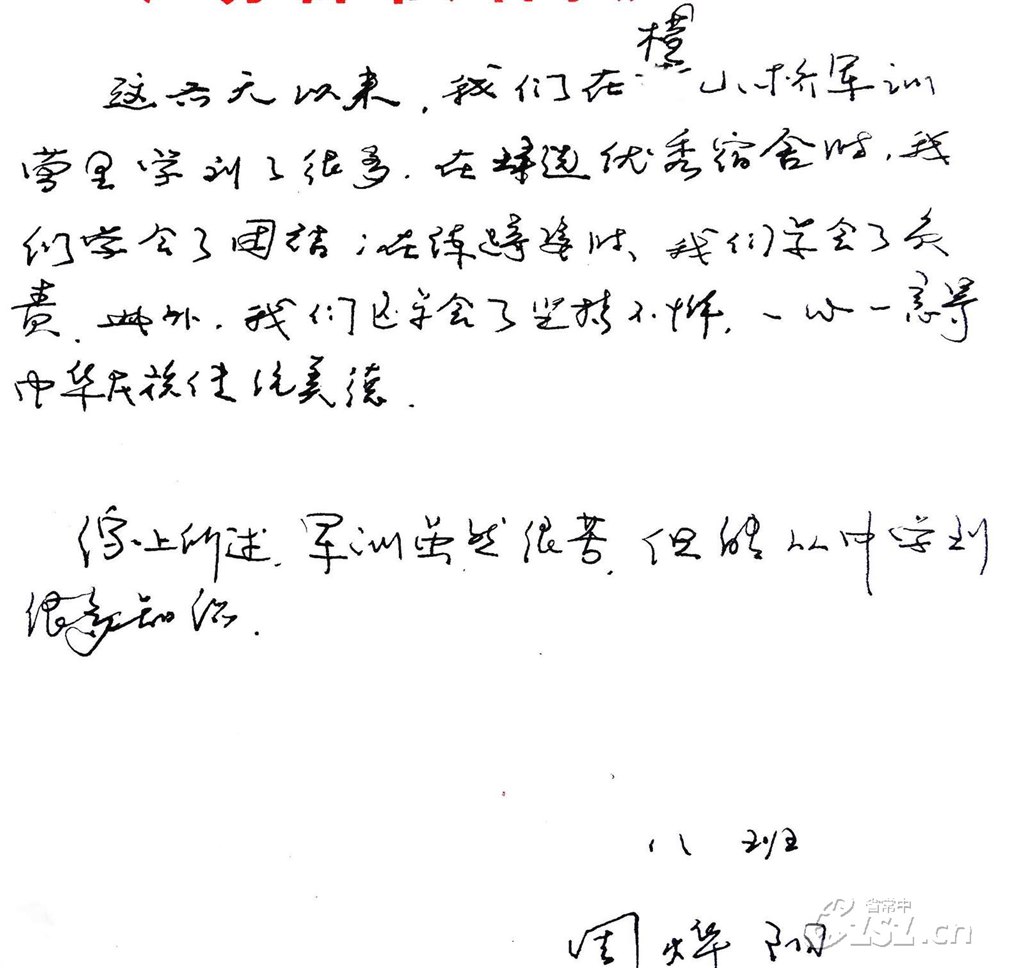 这六天以来,我们在横山桥军训
营里学到了很多.在择选优秀宿舍时,我
们学会了团结;在练踏步时,我们学会了负
责.此外,我们还学会了坚持不懈,一心一意等
中华民族传统美德.
综上所述,军训虽然很苦,但能从中学到
很多知识.
八班
周烨阳
省常中
CZ.cn